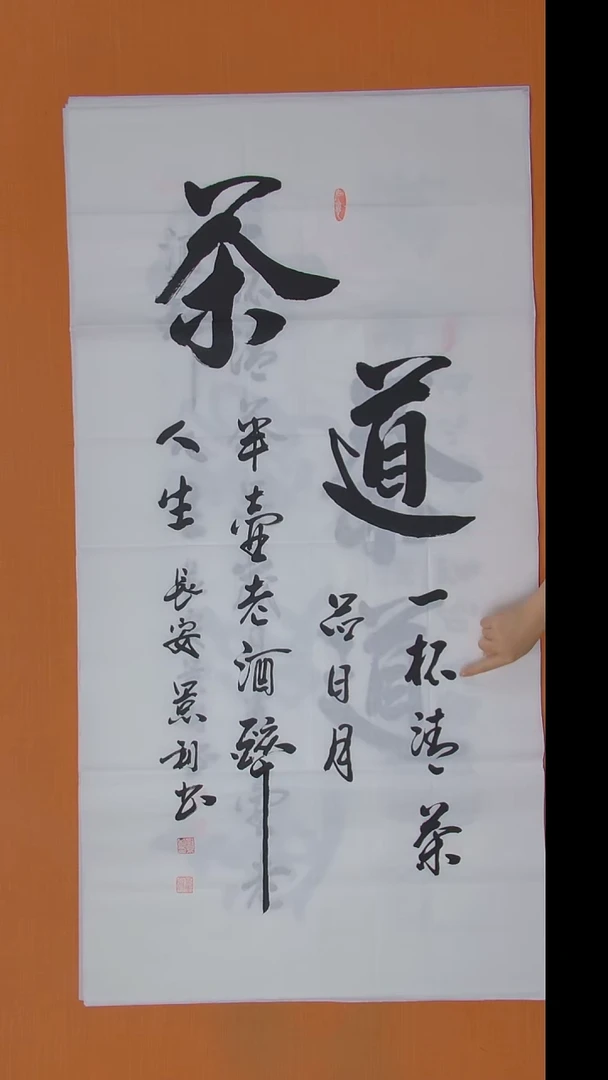 茶道
一杯清茶
品日月
半壶老酒醉
人生
長安景利书